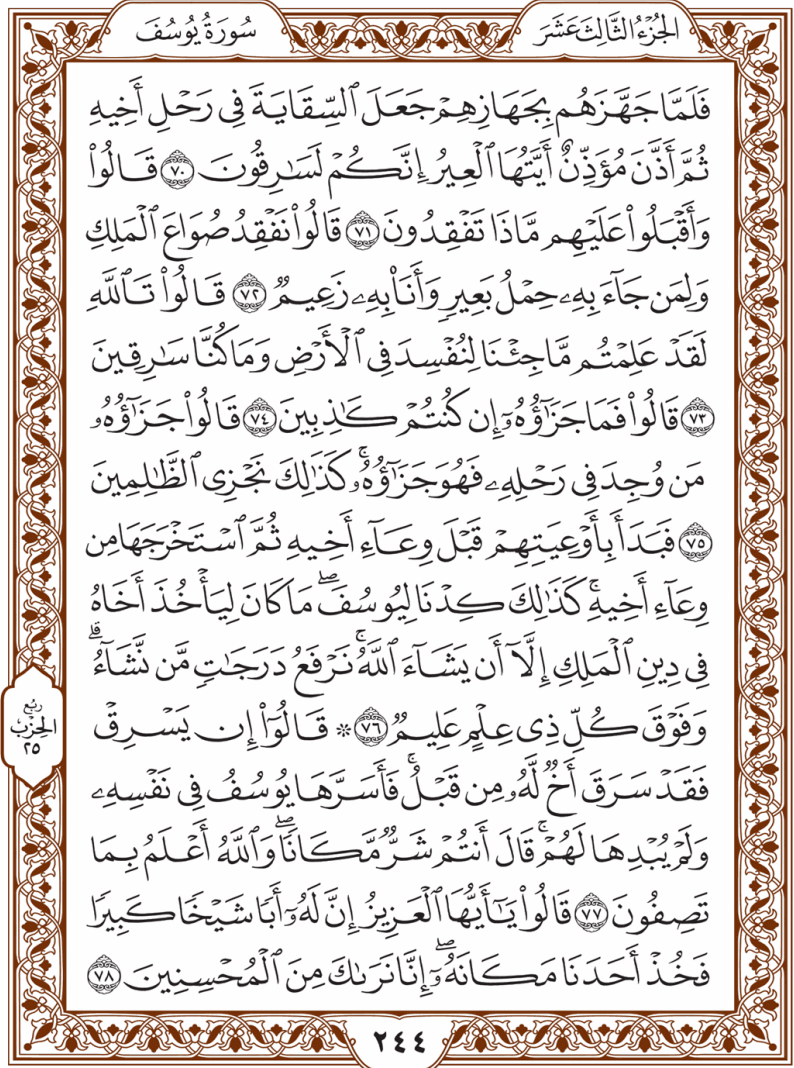 الجُزْءُ الثَّالِثَ عَشَرَ
سُورَةُ يُوسُفَ
فَلَمَّا جَهَّزَهُم بِجَهَازِهِمْ جَعَلَ ٱلسِّقَايَةَ فِى رَحْلِ أَخِيهِ
ثُمَّ أَذَّنَ مُؤَذِّنٌ أَيَّتُهَا ٱلْعِيرُ إِنَّكُمْ لَسَـٰرِقُونَ ٧٠ قَالُوا۟
وَأَقْبَلُوا۟ عَلَيْهِم مَّاذَا تَفْقِدُونَ ٧١ قَالُوا۟ نَفْقِدُ صُوَاعَ ٱلْمَلِكِ
وَلِمَن جَآءَ بِهِۦ حِمْلُ بَعِيرٍ وَأَنَا۠ بِهِۦ زَعِيمٌ ٧٢ قَالُوا۟ تَٱللَّهِ
لَقَدْ عَلِمْتُم مَّا جِئْنَا لِنُفْسِدَ فِى ٱلْأَرْضِ وَمَا كُنَّا سَـٰرِقِينَ
٧٣ قَالُوا۟ فَمَا جَزَٰٓؤُهُۥٓ إِن كُنتُمْ كَـٰذِبِينَ ٧٤ قَالُوا۟ جَزَٰٓؤُهُۥ
مَن وُجِدَ فِى رَحْلِهِۦ فَهُوَ جَزَٰٓؤُهُۥ ۚ كَذَٰلِكَ نَجْزِى ٱلظَّـٰلِمِينَ
٧٥ فَبَدَأَ بِأَوْعِيَتِهِمْ قَبْلَ وِعَآءِ أَخِيهِ ثُمَّ ٱسْتَخْرَجَهَا مِن
وِعَآءِ أَخِيهِ ۚ كَذَٰلِكَ كِدْنَا لِيُوسُفَ ۖ مَا كَانَ لِيَأْخُذَ أَخَاهُ
فِى دِينِ ٱلْمَلِكِ إِلَّآ أَن يَشَآءَ ٱللَّهُ ۚ نَرْفَعُ دَرَجَـٰتٍ مَّن نَّشَآءُ ۗ
وَفَوْقَ كُلِّ ذِى عِلْمٍ عَلِيمٌ ٧٦ ۞ قَالُوٓا۟ إِن يَسْرِقْ
فَقَدْ سَرَقَ أَخٌ لَّهُۥ مِن قَبْلُ ۚ فَأَسَرَّهَا يُوسُفُ فِى نَفْسِهِۦ
وَلَمْ يُبْدِهَا لَهُمْ ۚ قَالَ أَنتُمْ شَرٌّ مَّكَانًا ۖ وَٱللَّهُ أَعْلَمُ بِمَا
تَصِفُونَ ٧٧ قَالُوا۟ يَـٰٓأَيُّهَا ٱلْعَزِيزُ إِنَّ لَهُۥٓ أَبًا شَيْخًا كَبِيرًا
فَخُذْ أَحَدَنَا مَكَانَهُۥٓ ۖ إِنَّا نَرَىٰكَ مِنَ ٱلْمُحْسِنِينَ ٧٨
رُبْعُ
الحِزْبِ
٢٥
٢٤٤